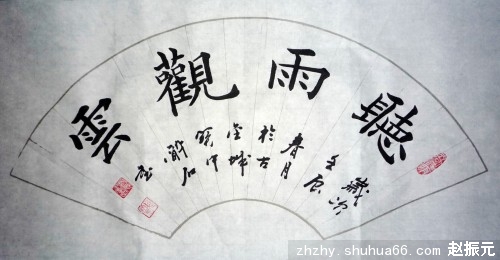 聽雨觀雲
歲次
壬辰
春月
於古
金城
zhzhy.shuhua66.com 赵振元